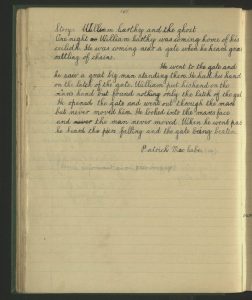 Story: William harthey and the ghost
One night William harthey was coming home of his
ceilidh. He was coming near a gate when he heard great
rattling of chains.
He went to the gate and
he saw a great big man standing there. He had his hand
on the latch of the gate. William put his hand on the
man's hand but found nothing only the latch of the gate
He opened the gate and went out through the man
but never moved him. He looked into the man's face
and the man never moved. When he went past
he heard the falling and the gate being beaten
Patrick Mac Cabe